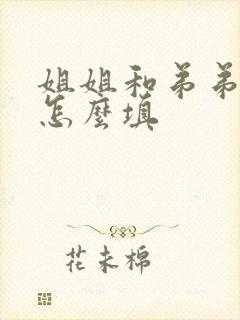 姐姐和弟弟
怎麼填
花未棉